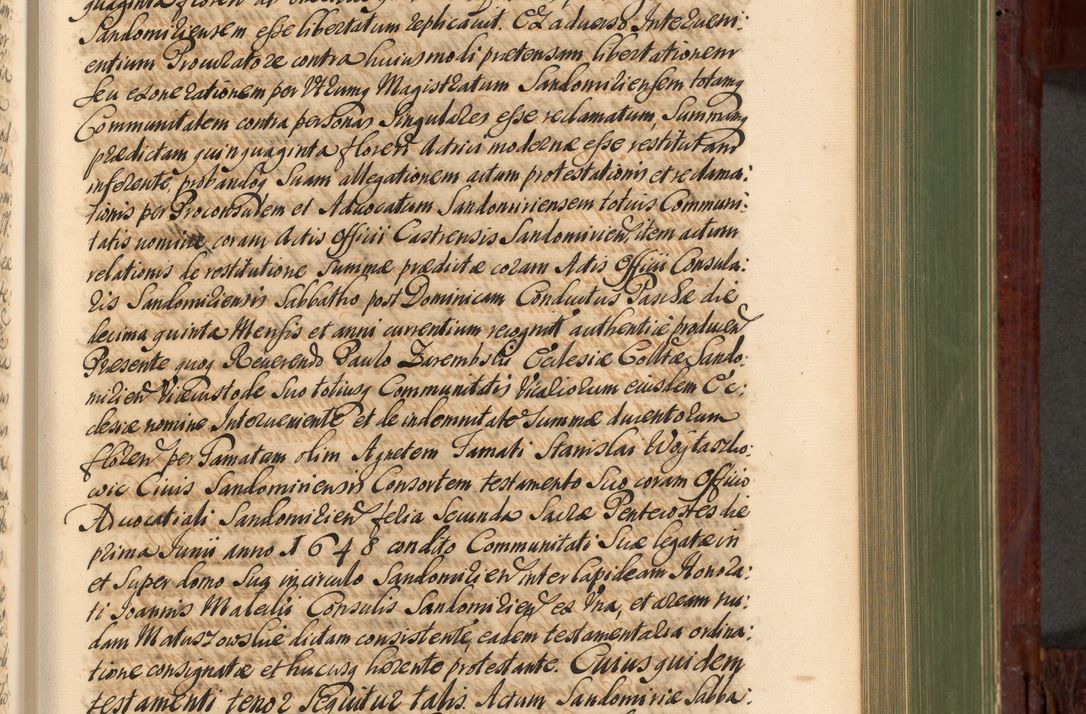 Sandomiriensem esse libertatum replicavit. Ex adverso Interveni:
entium Procuratore contra huiusmodi prætensam libertationem
seu exonerationem per Utrumq Magistratum Sandomiriensem totamq
Communitatem contra personas Singulares esse reclamatum, Summamq
prædictam quinquaginta floren Actrici modernæ esse restitutam
inferente, probandoq Suam allegationem actum protestationis et reclama:
tionis per Proconsulem et Advocatum Sandomiriensem totius Communi:
tatis nomine coram Actis Officii Castrensis Sandomirien, item actum
relationis de restitutione Summæ prædictæ coram Actis Officii Consula:
ris Sandomiriensis Sabbatho post Dominicam Conductus Paschæ die
decima quinta Mensis et anni currentium recognit authentice producen
Præsente quoq Reverendo Paulo Zarembski Ecclesiæ Colltæ Sando:
mirien Vicecustode Suo totiusq Communitatis Vicariorum eiusdem Ec:
clesiæ nomine Interveniente et de indemnitate Summæ ducentorum
floren per Famatam olim Agnetem Famati Stanislai Woytaszko:
wic Civis Sandomiriensis Consortem testamento Suo coram Officio
Advocatiali Sandomirien feria Secunda Sacræ Pentecostes die
prima Junii anno 1648 condito Communitati Suæ legatæin
et Super domo Sua in circulo Sandomirien inter lapideam Honora:
ti Joannis Malelii Consulis Sandomirien ex Una, et aream nu:
dam Matuszowskie dictam consistente, eadem testamentaria ordina:
tione consignatæ et hucusq hærente protestante. Cuius quidem
testamenti tenor Sequitur talis. Actum Sandomiriæ Sabba: